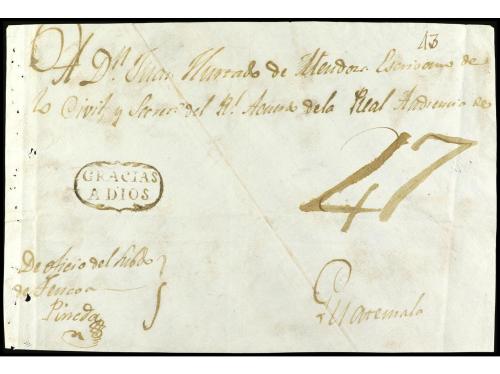 13
A Dn Juan Hurtado de Mendoza Escrivano de
lo Civil y Secreo del Rl Acuerdo de la Real Audiencia de
GRACIAS
A DIOS
47
De oficio del Subdo
de Tencoa
Pineda
Guatemala